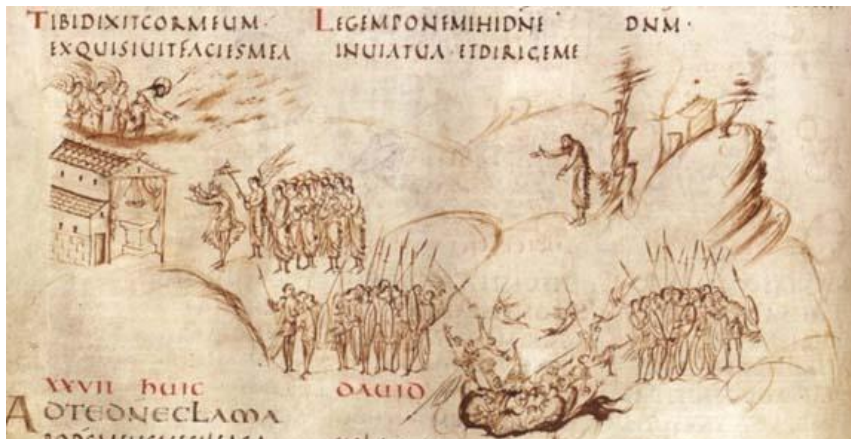 TIBIDIXITCORMEUM·
EXQUISIUITFACIESMEA
LEGEMPONEMIHIDNE
INUIATUA·ETDIRIGEME
DNM·
XXVII HUIC DAUID
ADTEDNECLAMA